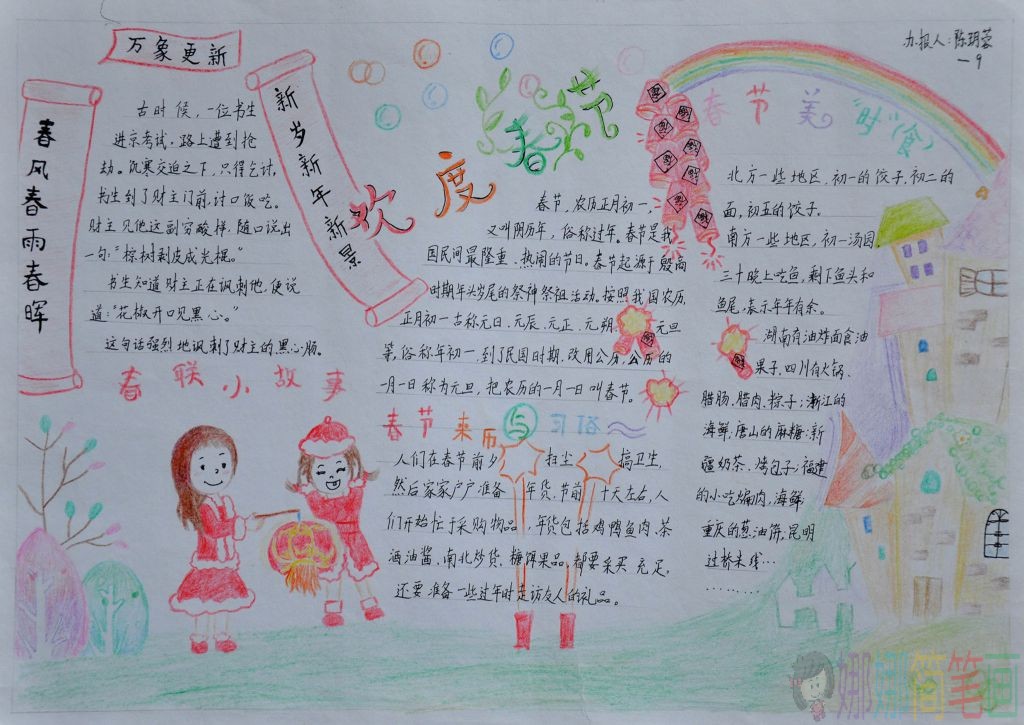 万象更新
春风春雨春晖
新岁新年新景
古时候，一位书生
进京考试，路上遭到抢
劫。饥寒交迫之下，只得乞讨，
书生到了财主门前，讨口饭吃。
财主见他这副穷酸样，随口说出
一句：“棕树剥皮成光棍。”
书生知道财主正在讽刺他，便说
道：“花椒开口见黑心。”
这句话强烈地讽刺了财主的黑心肠。
春联小故事
欢度春节
春节，农历正月初一，
又叫阴历年，俗称过年。春节是我
国民间最隆重、热闹的节日。春节起源于殷商
时期年头岁尾的祭神祭祖活动。按照我国农历，
正月初一古称元日、元辰、元正、元朔、元旦
等，俗称年初一，到了民国时期，改用公历，公历的
一月一日称为元旦，把农历的一月一日叫春节。
春节来历与习俗
人们在春节前夕扫尘搞卫生，
然后家家户户准备年货，节前十天左右，人
们开始忙于采购物品，年货包括鸡鸭鱼肉、茶
酒油酱、南北炒货、糖饵果品，都要采买充足，
还要准备一些过年时走访友人的礼品。
办报人：陈玥蓉
一9
春节美“时”（食）
北方一些地区，初一的饺子，初二的
面，初五的饺子。
南方一些地区，初一汤圆，
三十晚上吃鱼，剩下鱼头和
鱼尾，表示年年有余。
湖南有油炸面食油
果子，四川有火锅、
腊肠、腊肉、粽子；浙江的
海鲜；唐山的麻糖；新
疆奶茶、烤包子；福建
的小吃扁肉，海鲜
重庆的葱油饼，昆明
过桥米线…
…………
娜娜简笔画